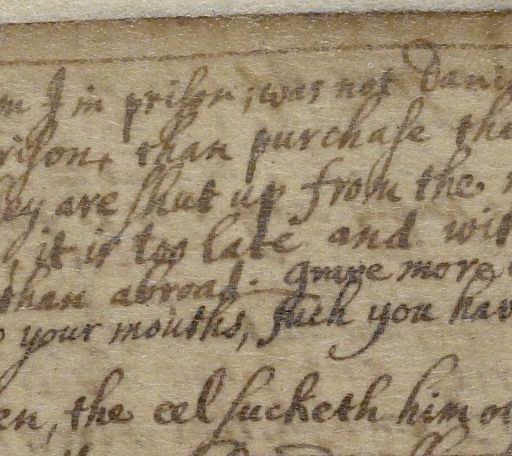 m I in prison; was not Dani
rison, than purchase tha
ey are shut up from the
, it is too late and wit
than abroad. more
your mouths, such you hav
en, the eel sucketh him o